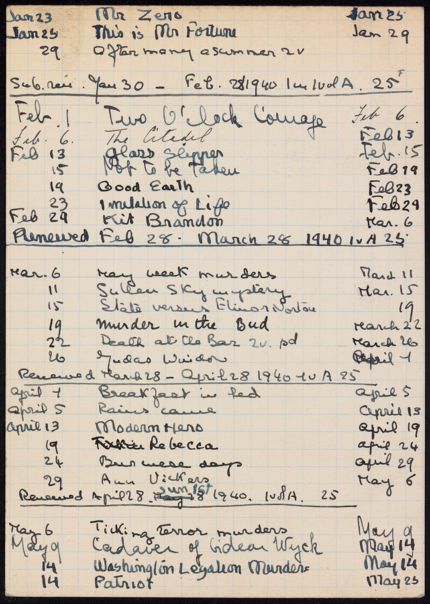 Jan 23 Mr Zero Jan 25
Jan 25 This is Mr Fortune Jan 29
29 After many a summer 2v
Sub. ren. Jan 30 - Feb. 28/1940 1m 1vol A. 25F
Feb 1 Two O'Clock Courage Feb 6.
Feb. 6. The Citadel Feb 13
Feb 13 Glass Slipper Feb. 15
15 Not to be Taken Feb 19
19 Good Earth Feb 23
23 Imitation of Life Feb 29
Feb 29 Kit Brandon Mar. 6
Renewed Feb 28. March 28 1940 1v A 25
Mar. 6 May week murders March 11
11 Sullen Sky mystery Mar. 15
15 State versus Elinor Norton 19
19 Murder in the Bud March 22
22 Death at the Bar 2v. pd March 26
26 Judas Window April 1
Renewed March 28 - April 28 1940 1v A 25
April 1 Breakfast in bed April 5
April 5 Rains came April 13
April 13 Modern Hero April 19
19 Rebecca April 24
24 Burmese days April 29
29 Ann Vickers May 6
Renewed April 28 Jun 1st 1940. 1vol A. 25
May 6 Ticking Terror murders May 9
May 9 Cadaver of Gideon Wyck May 14
14 Washington Legation Murders May 14
14 Patriot May 23